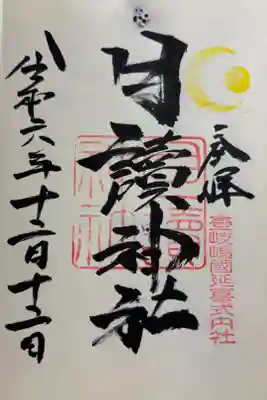 奉拝
壱岐嶋國延喜式内社
月讀神社
令和六年十二月十二日